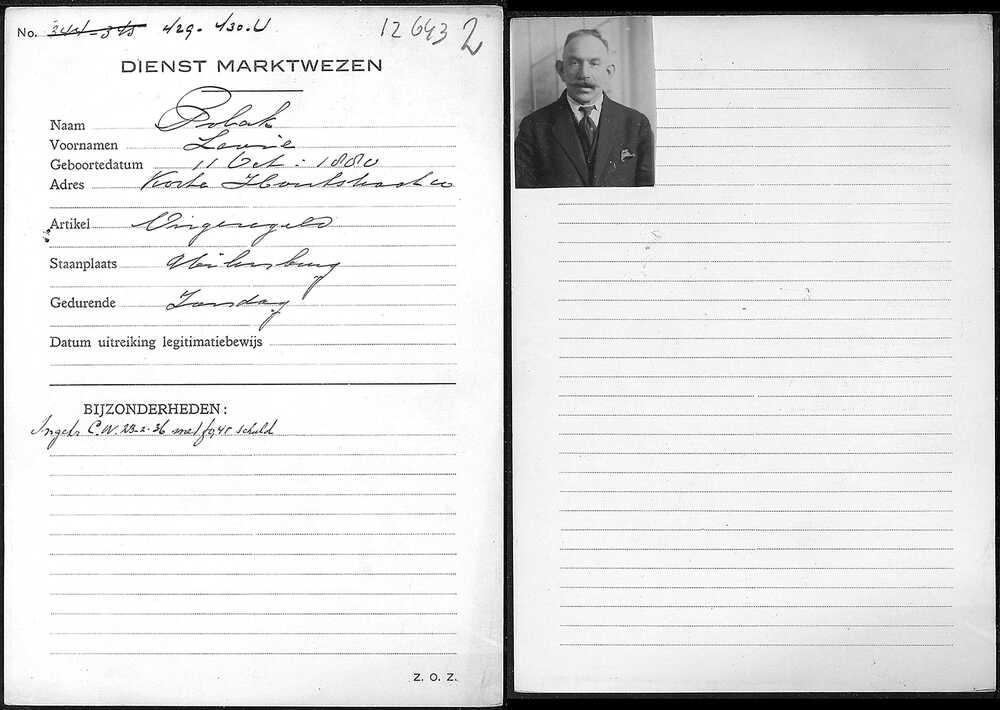 No. 344-345 429. 430. U 12643 2
DIENST MARKTWEZEN
Naam Polak
Voornamen Levie
Geboortedatum 11 Oct. 1880
Adres Korte Houtstraat
Artikel Ongeregeld
Staanplaats Uilenburg
Gedurende Zondag
Datum uitreiking legitimatiebewijs
BIJZONDERHEDEN:
Ingetr. C.W. 23-2-36 met schuld
Z. O. Z.